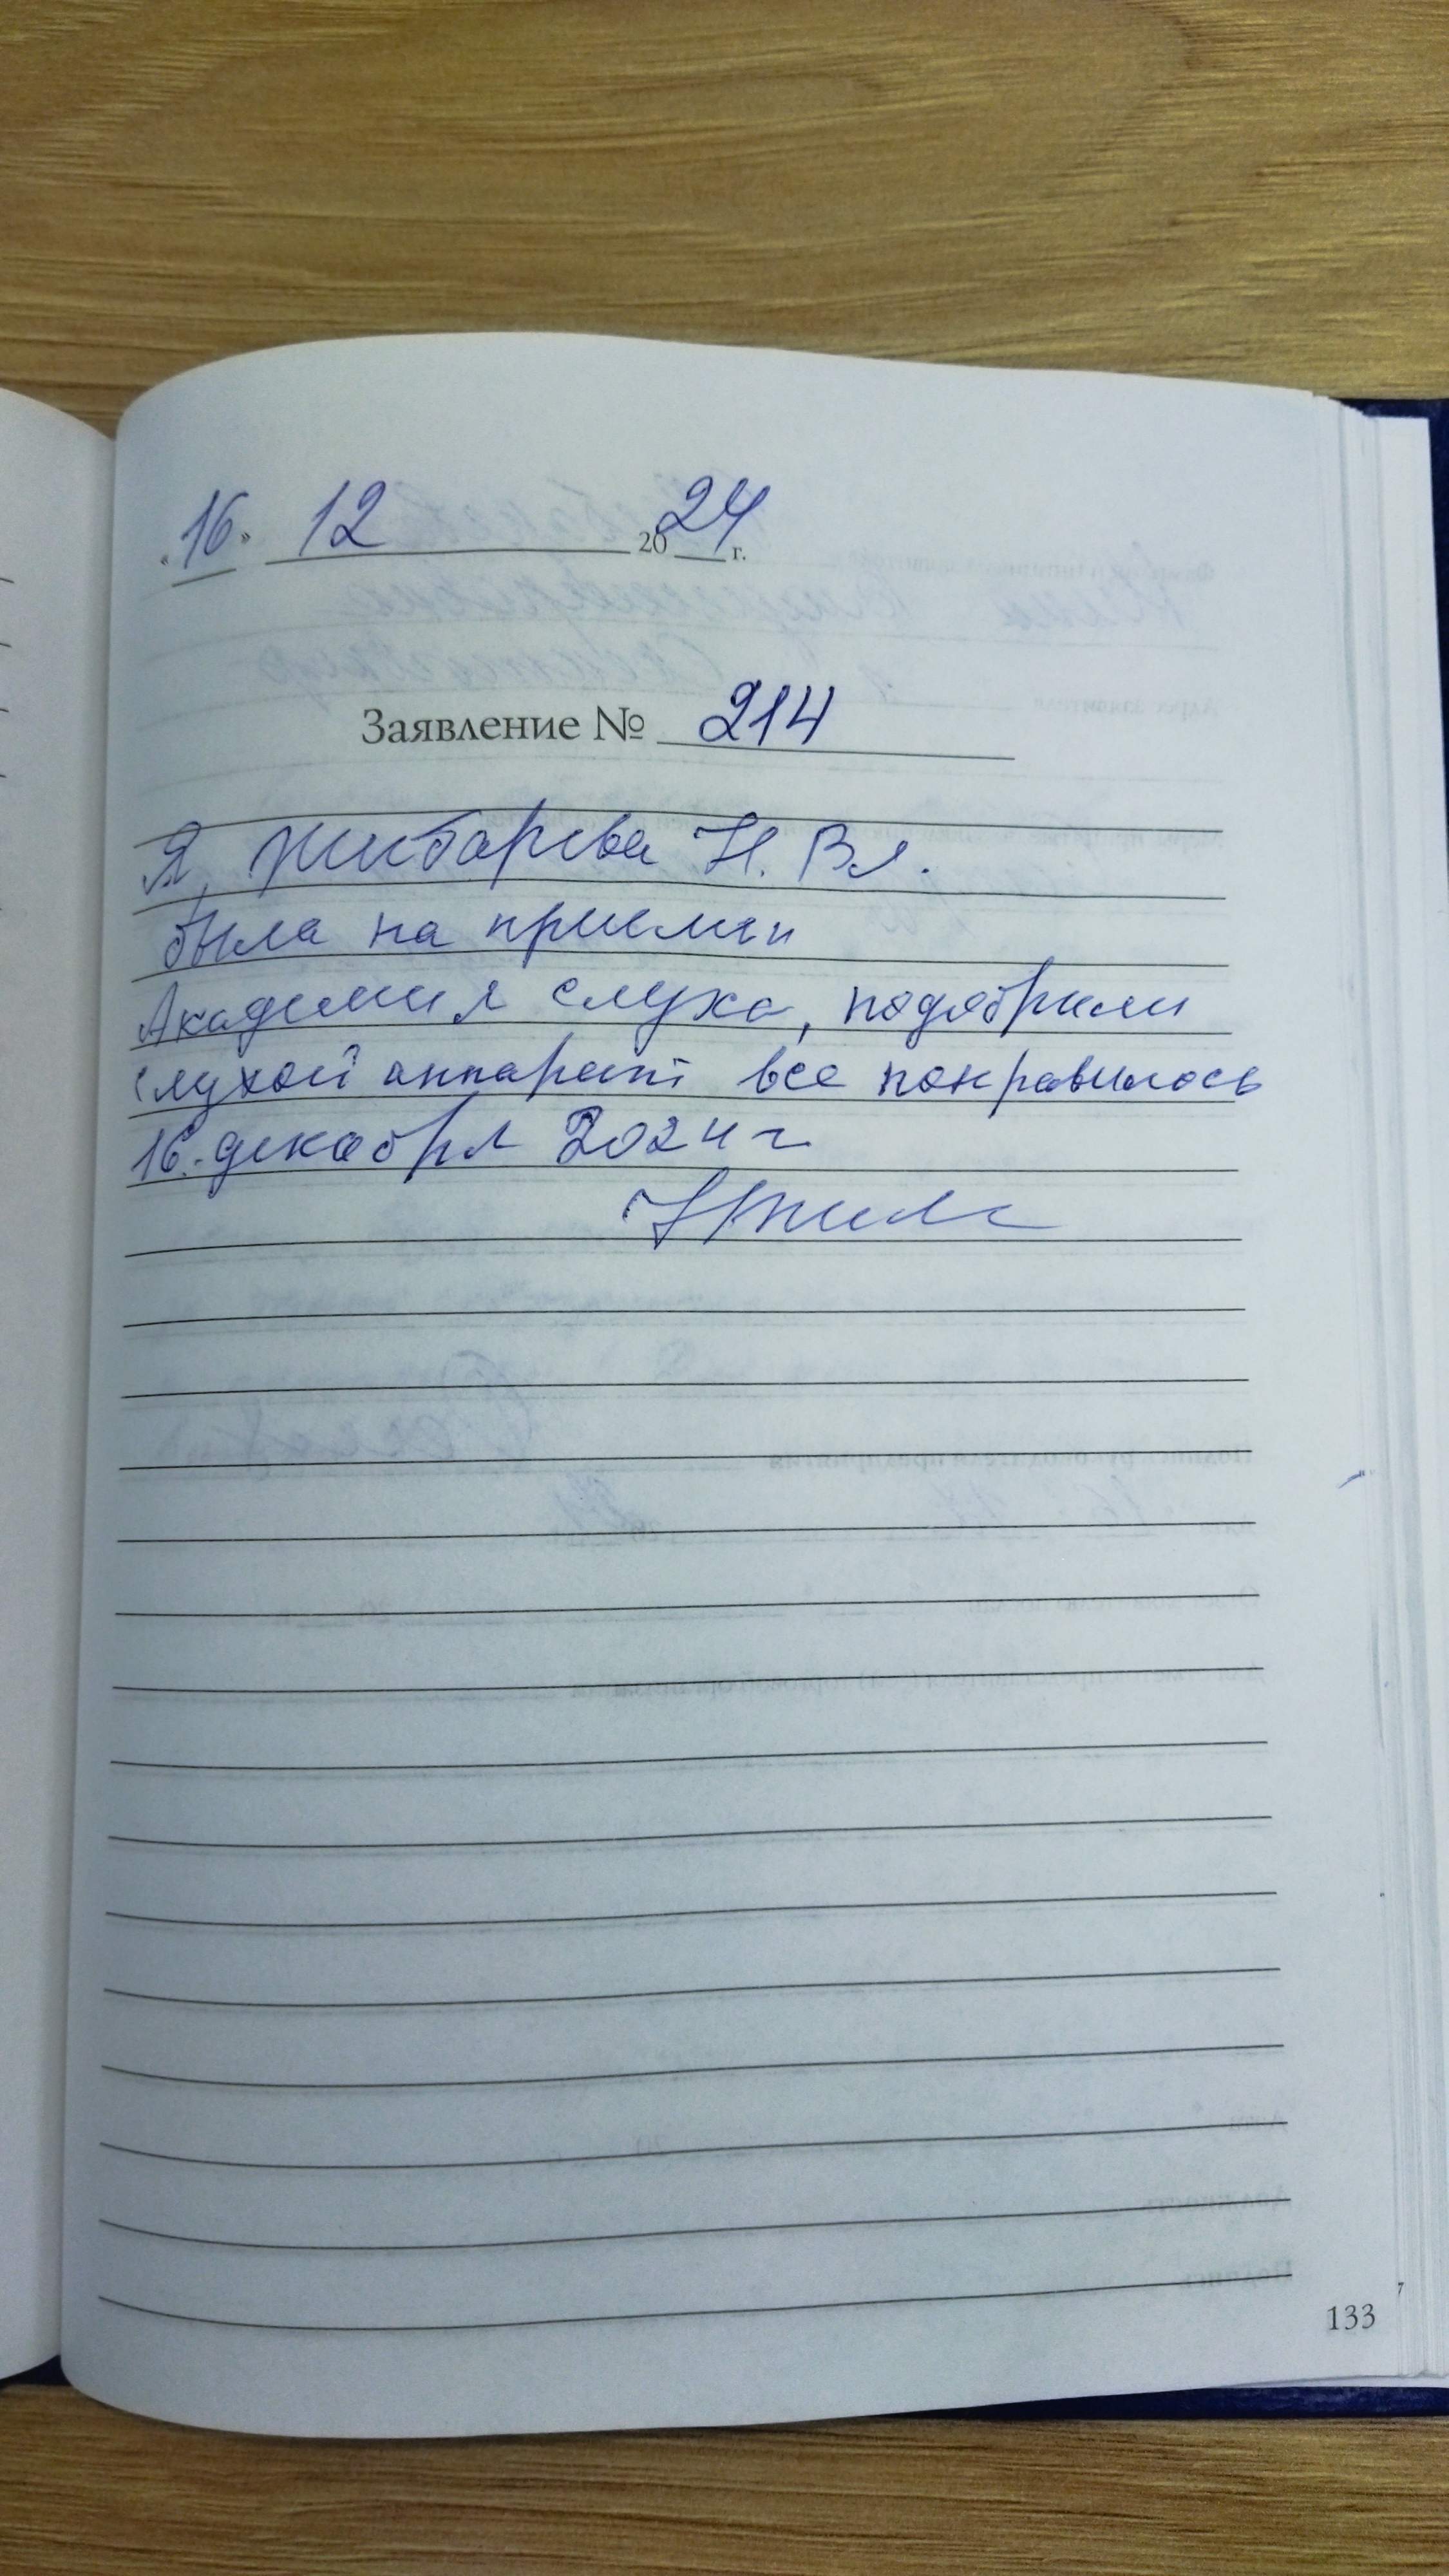 « 16 » 12 2024 г.
Заявление № 214
Я, Жибарева Н. Вл.
была на приёмеи
Академия слуха, подобрили
слухой аппарат все понравилось
16. декабря 2024 г
133